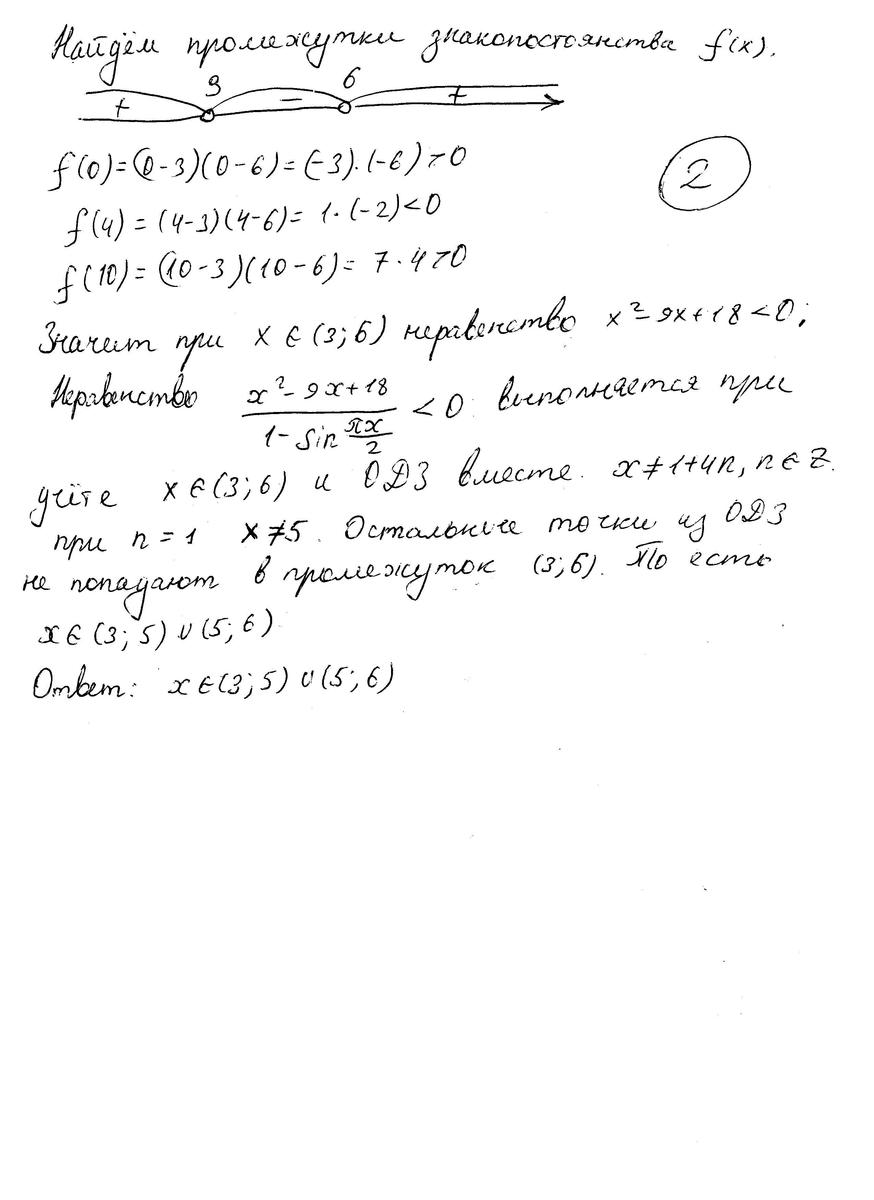 Найдём промежутки знакопостоянства f(x).
3 6
+ − +
f(0)=(0-3)(0-6)=(-3)·(-6)>0
2
f(4)=(4-3)(4-6)= 1·(-2)<0
f(10)=(10-3)(10-6)= 7·4>0
Значит при x ∈ (3;6) неравенство x²-9x+18<0;
Неравенство (x²-9x+18)/(1-sin πx/2) < 0 выполняется при
учёте x ∈ (3;6) и ОДЗ вместе. x≠1+4n, n∈Z.
при n=1 x≠5. Остальные точки из ОДЗ
не попадают в промежуток (3;6). То есть
x∈(3;5)∪(5;6)
Ответ: x∈(3;5)∪(5;6)